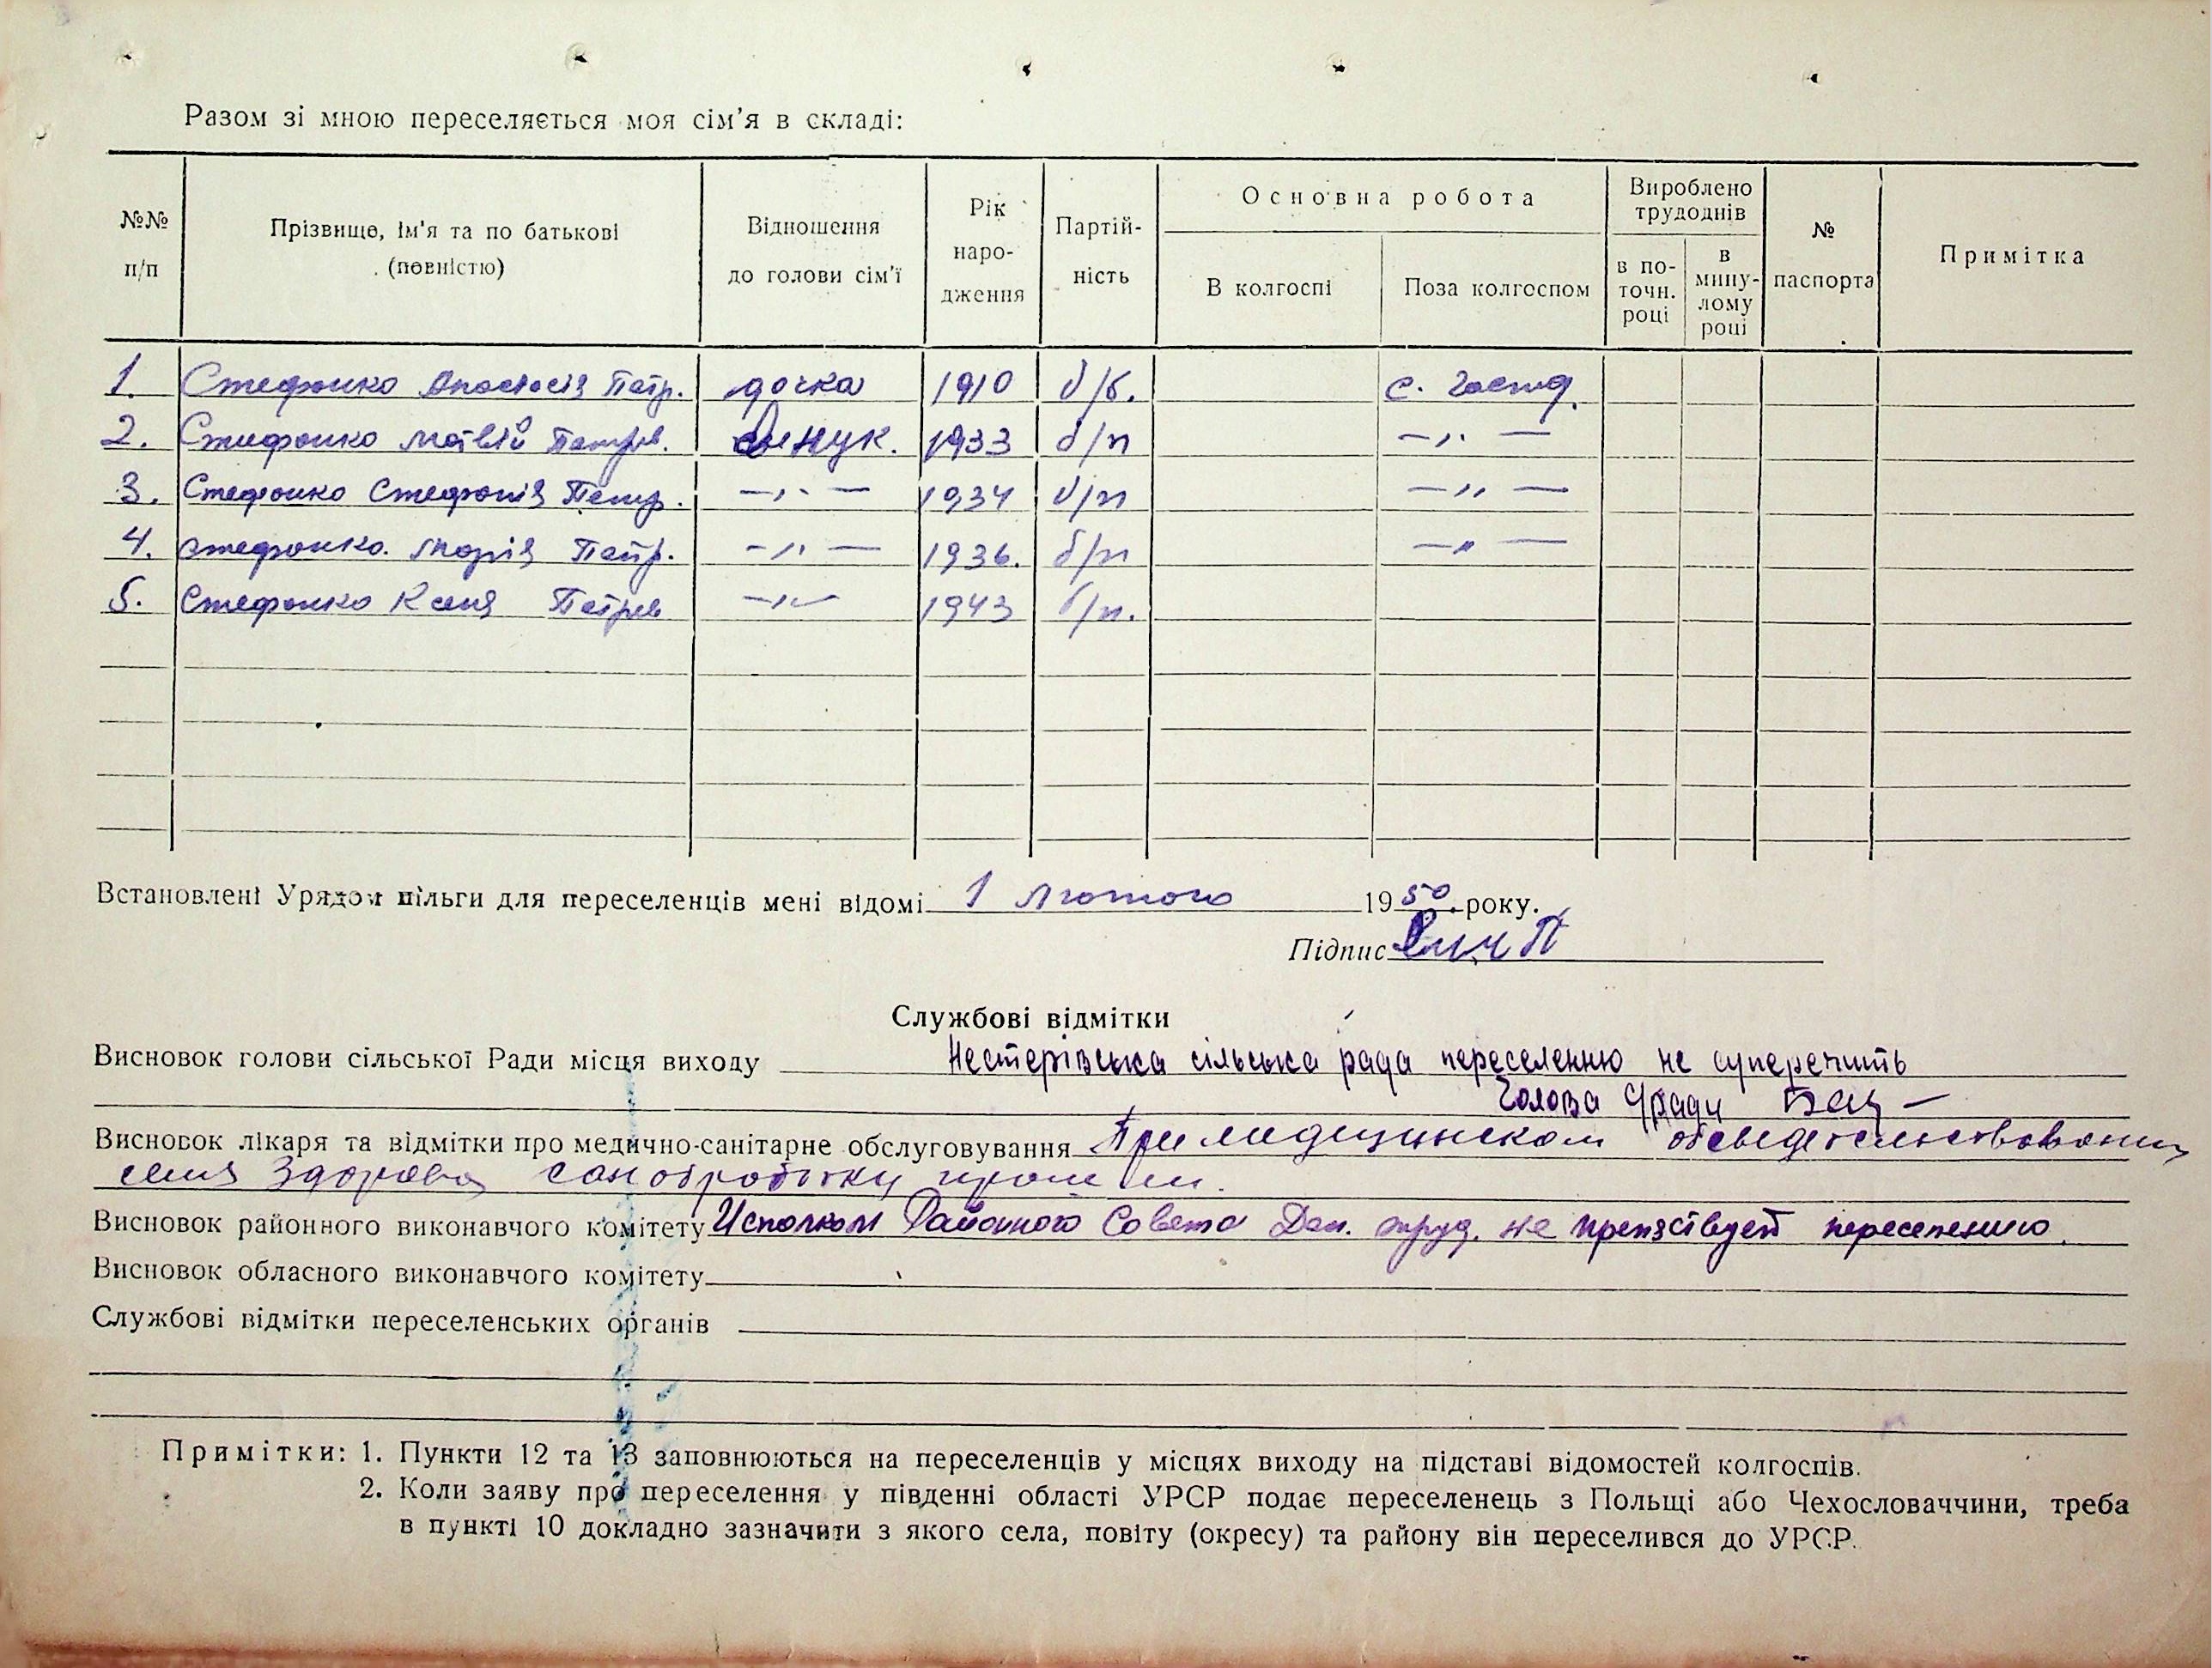 Разом зі мною переселяється моя сім'я в складі:
№№ п/п
Прізвище, ім'я та по батькові (повністю)
Відношення до голови сім'ї
Рік наро-дження
Партій-ність
Основна робота
В колгоспі
Поза колгоспом
Вироблено трудоднів
в по-точн. році
в мину-лому році
№ паспорта
Примітка
1. Стефанко Анастасія Петр. дочка 1910 б/б. с. госпд.
2. Стефанко Матвій Петров. внук. 1933 б/п -„-
3. Стефанко Стефанія Петр. -„- 1934 б/п -„-
4. Стефанко Марія Петр. -„- 1936. б/п -„-
5. Стефанко Ксеня Петров -„- 1943 б/п.
Встановлені Урядом пільги для переселенців мені відомі 1 лютого 1950. року.
Підпис
Службові відмітки
Висновок голови сільської Ради місця виходу Нестерівська сільська рада переселенню не суперечить
Голова с/ради
Висновок лікаря та відмітки про медично-санітарне обслуговування При медицинском освидетельствовании
семя здорова санобработку прошли.
Висновок районного виконавчого комітету Исполком Районного Совета Деп. труд. не препятствует переселению.
Висновок обласного виконавчого комітету
Службові відмітки переселенських органів
Примітки: 1. Пункти 12 та 13 заповнюються на переселенців у місцях виходу на підставі відомостей колгоспів.
2. Коли заяву про переселення у південні області УРСР подає переселенець з Польщі або Чехословаччини, треба
в пункті 10 докладно зазначити з якого села, повіту (окресу) та району він переселився до УРСР.